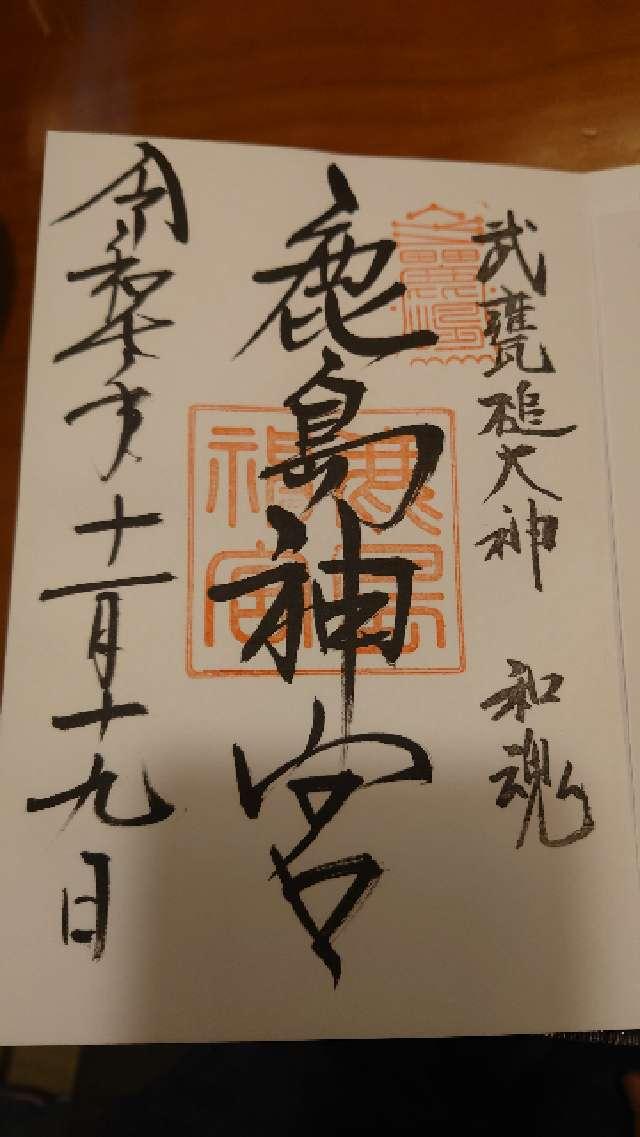 武甕槌大神 和魂
鹿島神宮
鹿島
神宮
令和年十一月十九日